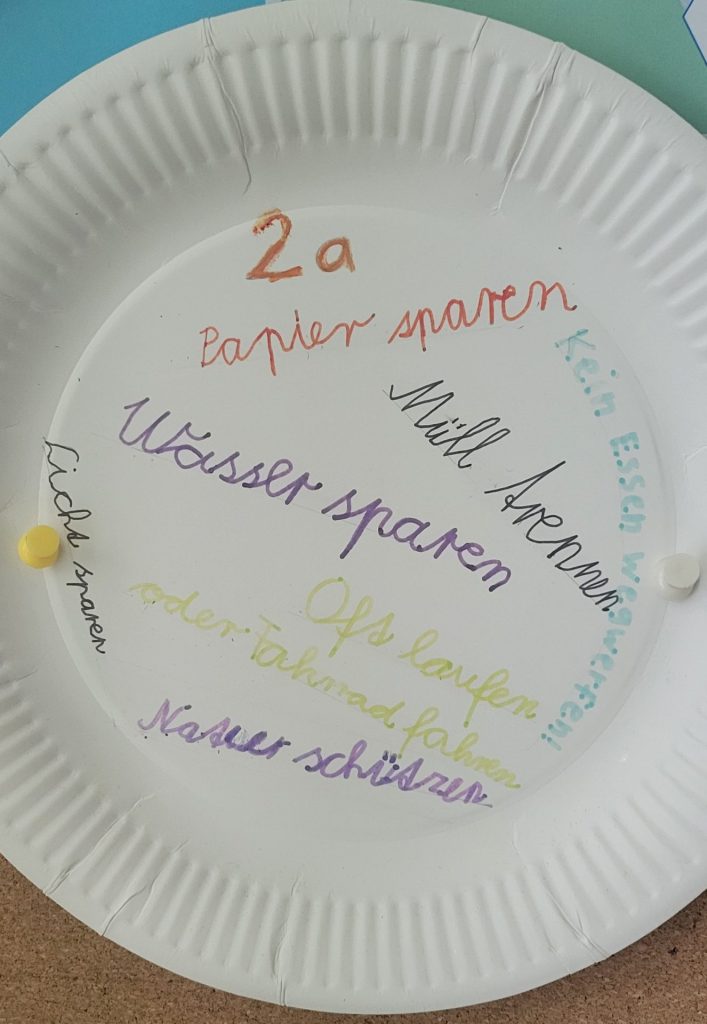 2a
Papier sparen
Kein Essen wegwerfen!
Müll trennen
Wasser sparen
Licht sparen
Oft laufen
oder Fahrrad fahren
Natur schützen